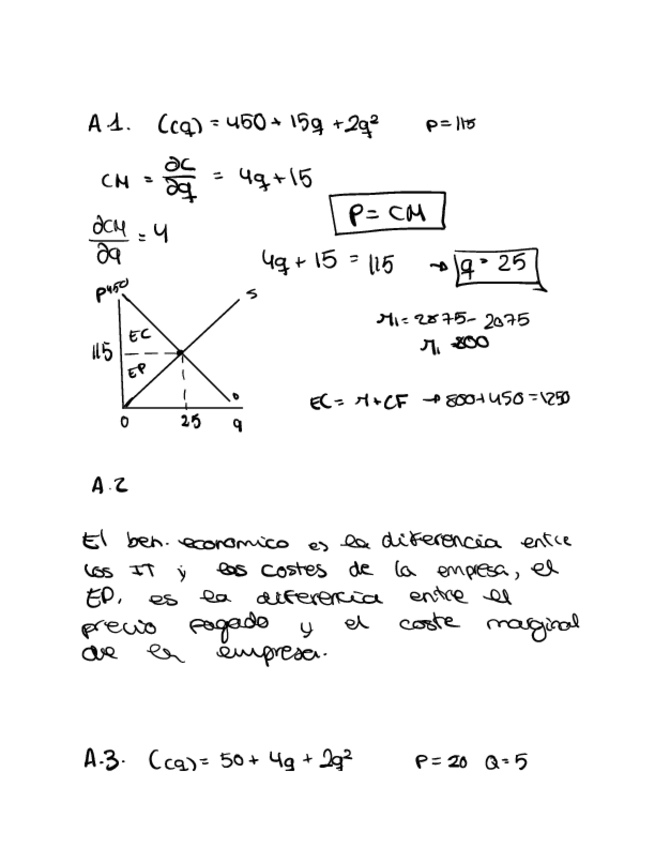 A1. C(q) = 450 + 15q + 2q² P=115
CM = ∂C/∂q = 4q+15
P = CM
∂CM/∂q = 4
4q + 15 = 115 → q = 25
P 450
S
EC
115
EP
D
0 25 q
π1 = 2875 - 2075
π1 = 800
EC = π + CF → 800+450 = 1250
A.2
El ben. economico es la diferencia entre
los IT y los costes de la empresa, el
EP, es la diferencia entre el
precio pagado y el coste marginal
de la empresa.
A.3. C(q) = 50 + 4q + 2q² P = 20 Q = 5